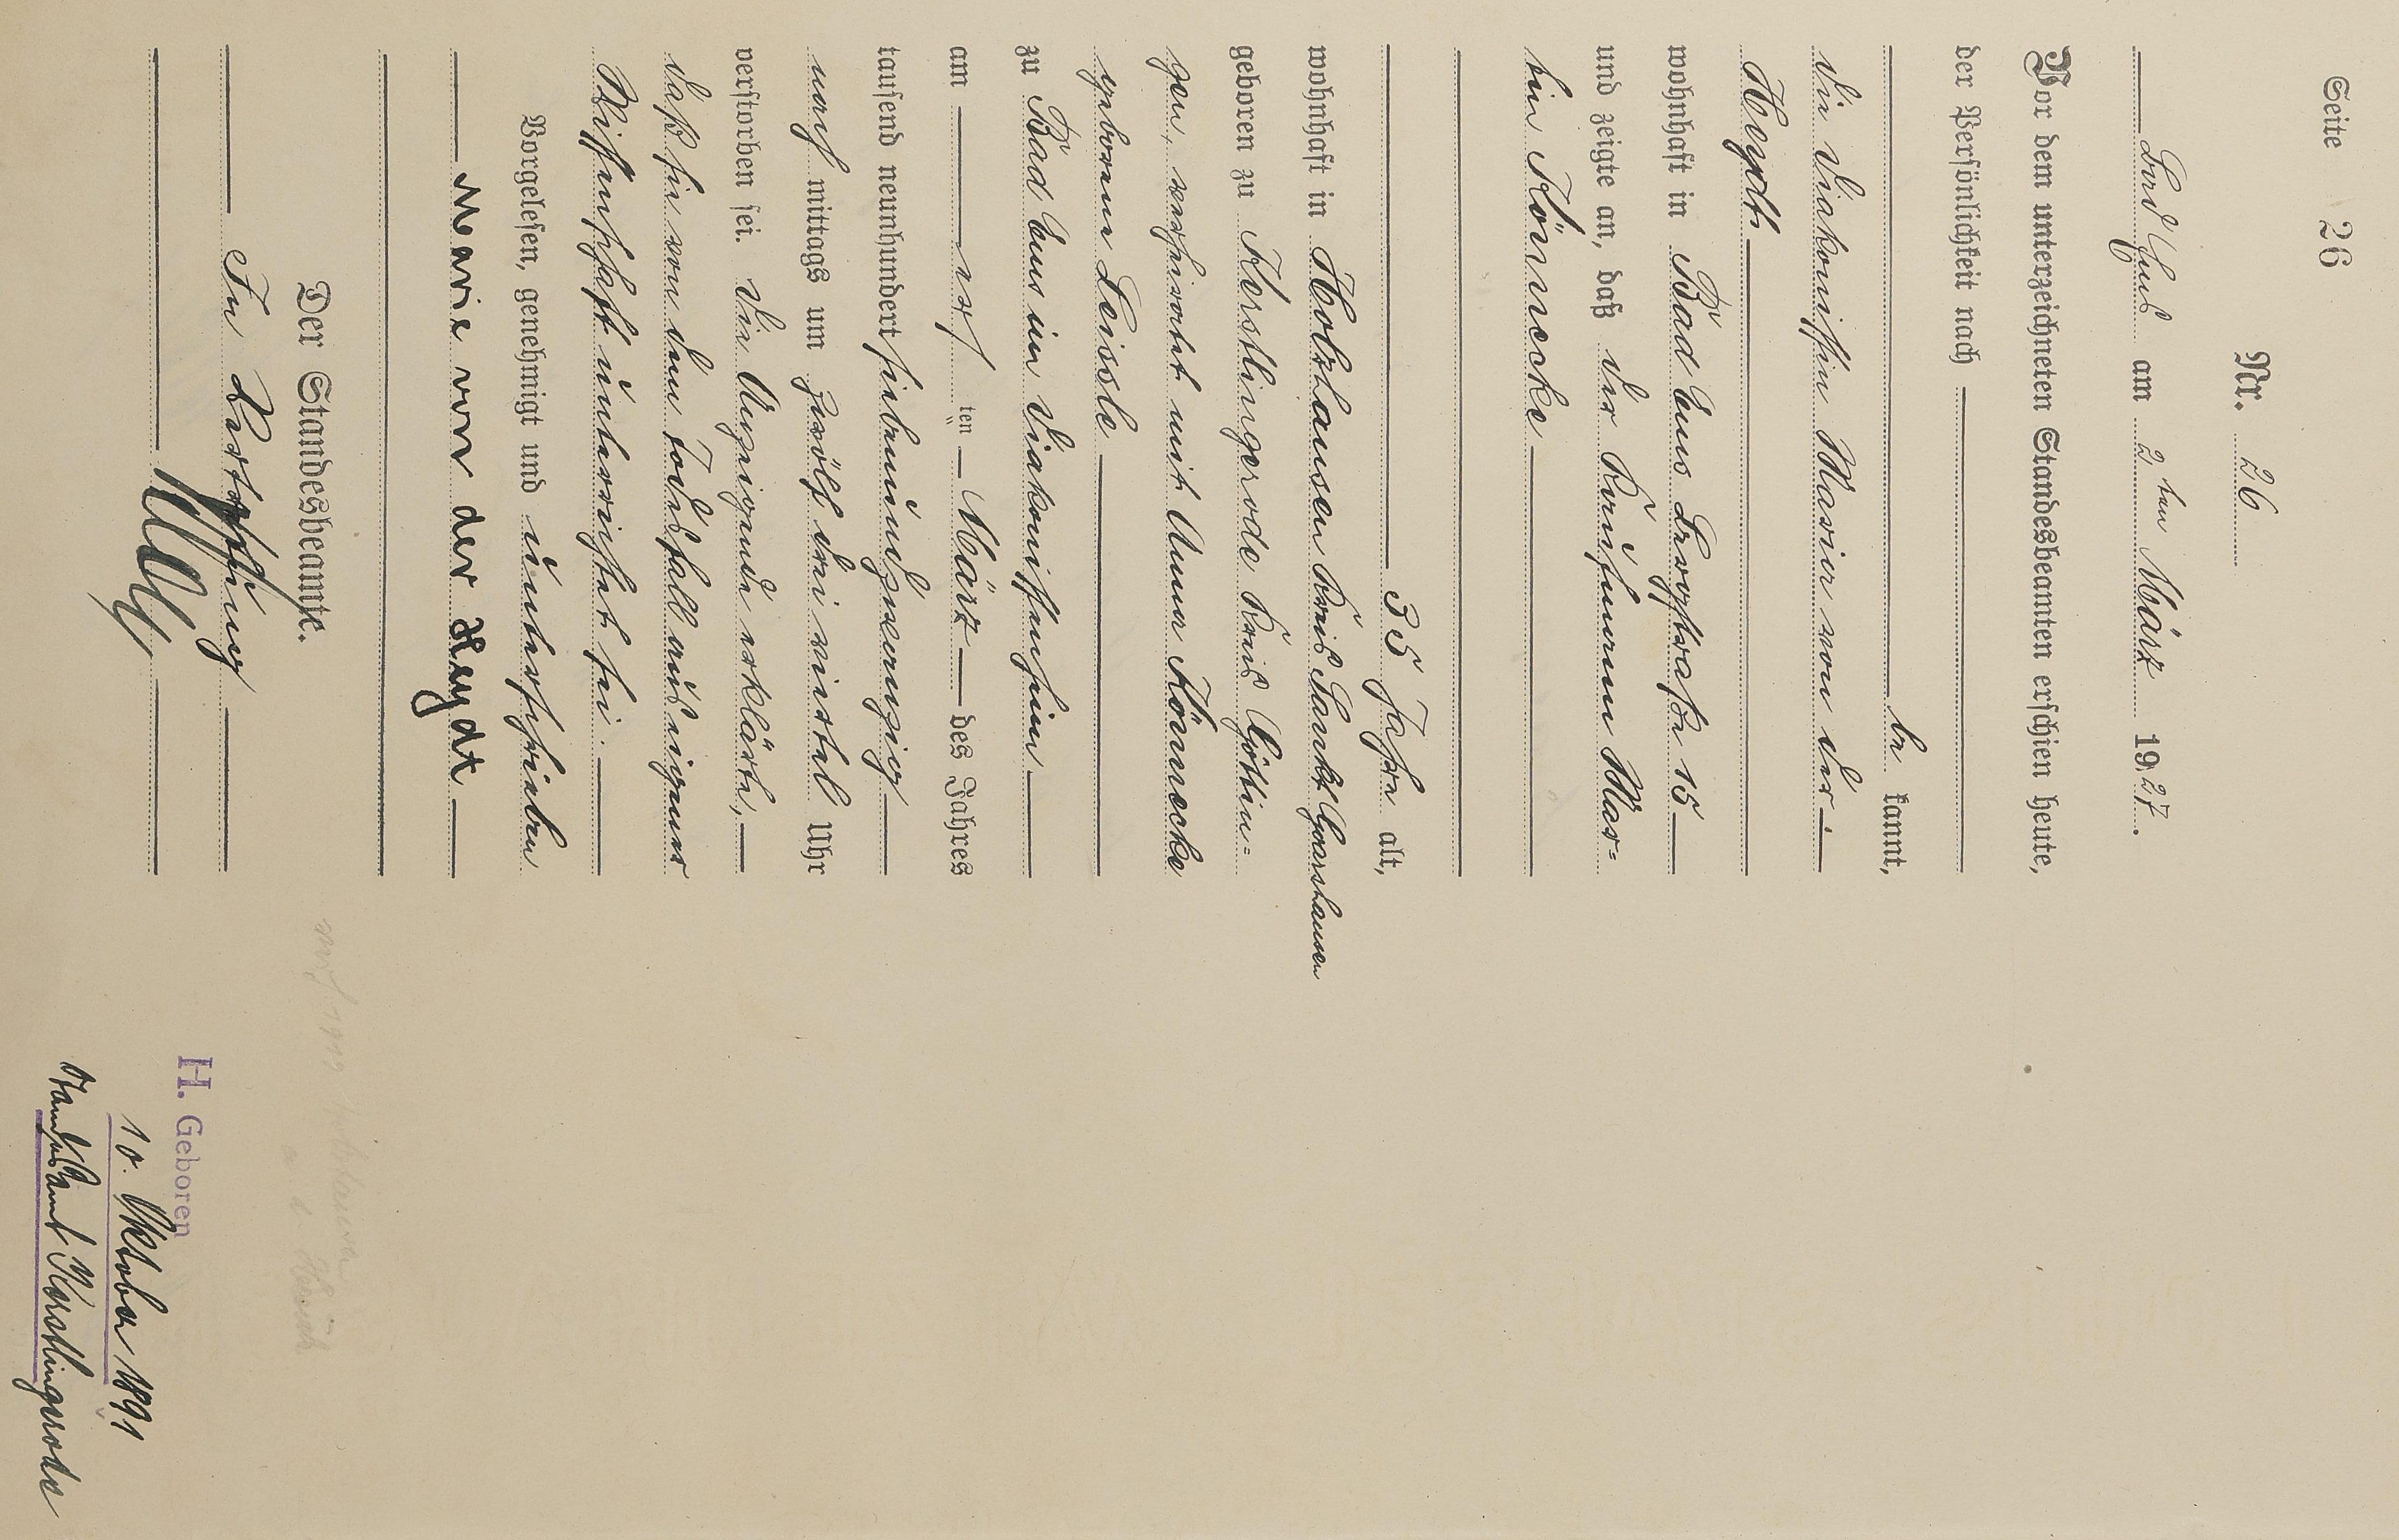 Seite 26
Nr. 26
Bad Ems am 2ten März 1927.
Vor dem unterzeichneten Standesbeamten erschien heute,
der Persönlichkeit nach
be kannt,
die Diakonissin Marie von der
Heydt
wohnhaft in Bad Ems Langstraße 15
und zeigte an, daß der Brüsmann Mar-
tin Könnecke
35 Jahre alt,
wohnhaft in Holzhausen Kreis Sankt Goarshausen
geboren zu Kerstlingerode Kreis Göttin-
gen, verheiratet mit Anna Könnecke
geborene Leissle
zu Bad Ems im Diakonissenheim
am ersten März des Jahres
tausend neunhundert siebenundzwanzig
nach mittags um zwölf drei viertel Uhr
verstorben sei. Die Anzeigende erklärte,
daß sie von dem Todesfall aus eigener
Wissenschaft unterrichtet sei.
Vorgelesen, genehmigt und unterschrieben
Marie von der Heydt
Der Standesbeamte.
In Vertretung
H. Geboren
10. Oktober 1891
Standesamt Kerstlingerode